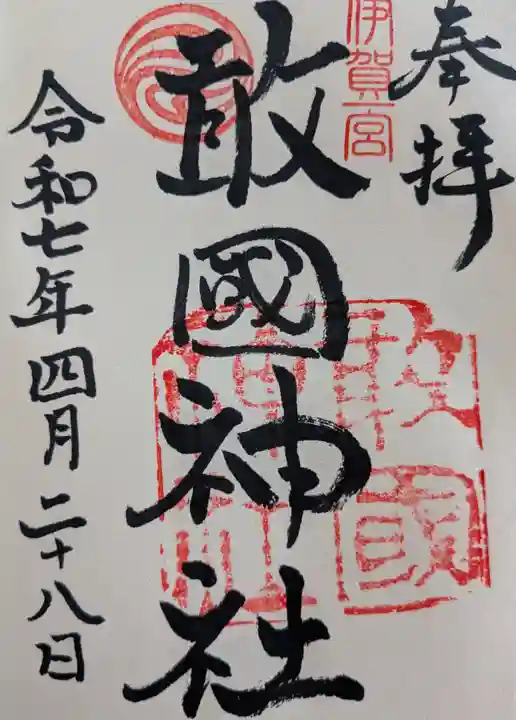 奉拝
伊賀一宮
敢國神社
敢國神社
令和七年四月二十八日